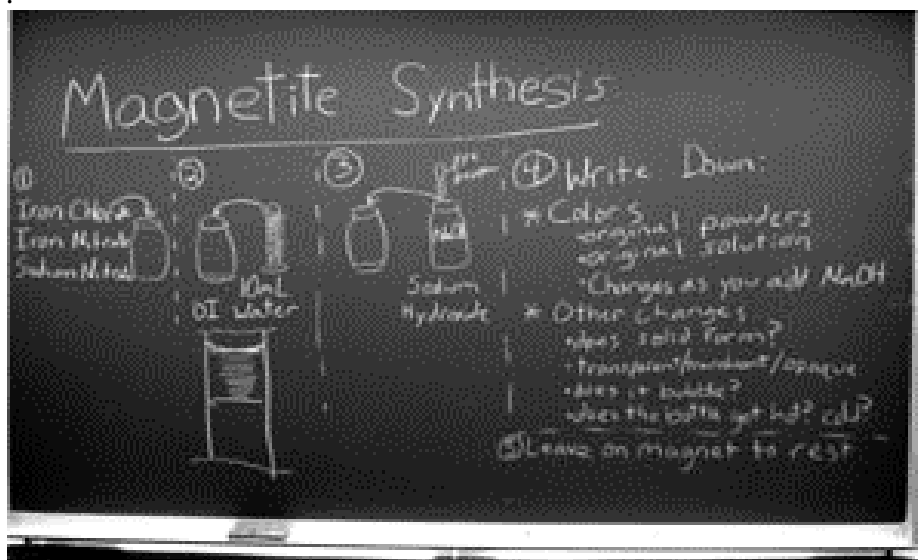 Magnetite Synthesis
①
Iron Chloride
Iron Nitrate
Sodium
②
10mL
DI Water
③
Sodium
Hydroxide
④ Write Down:
* Colors
original powders
original solution
Changes as you add NaOH
* Other changes
does solid form?
transparent/translucent/opaque
does it bubble?
does the bottle get hot? cold?
⑤ Leave on magnet to rest